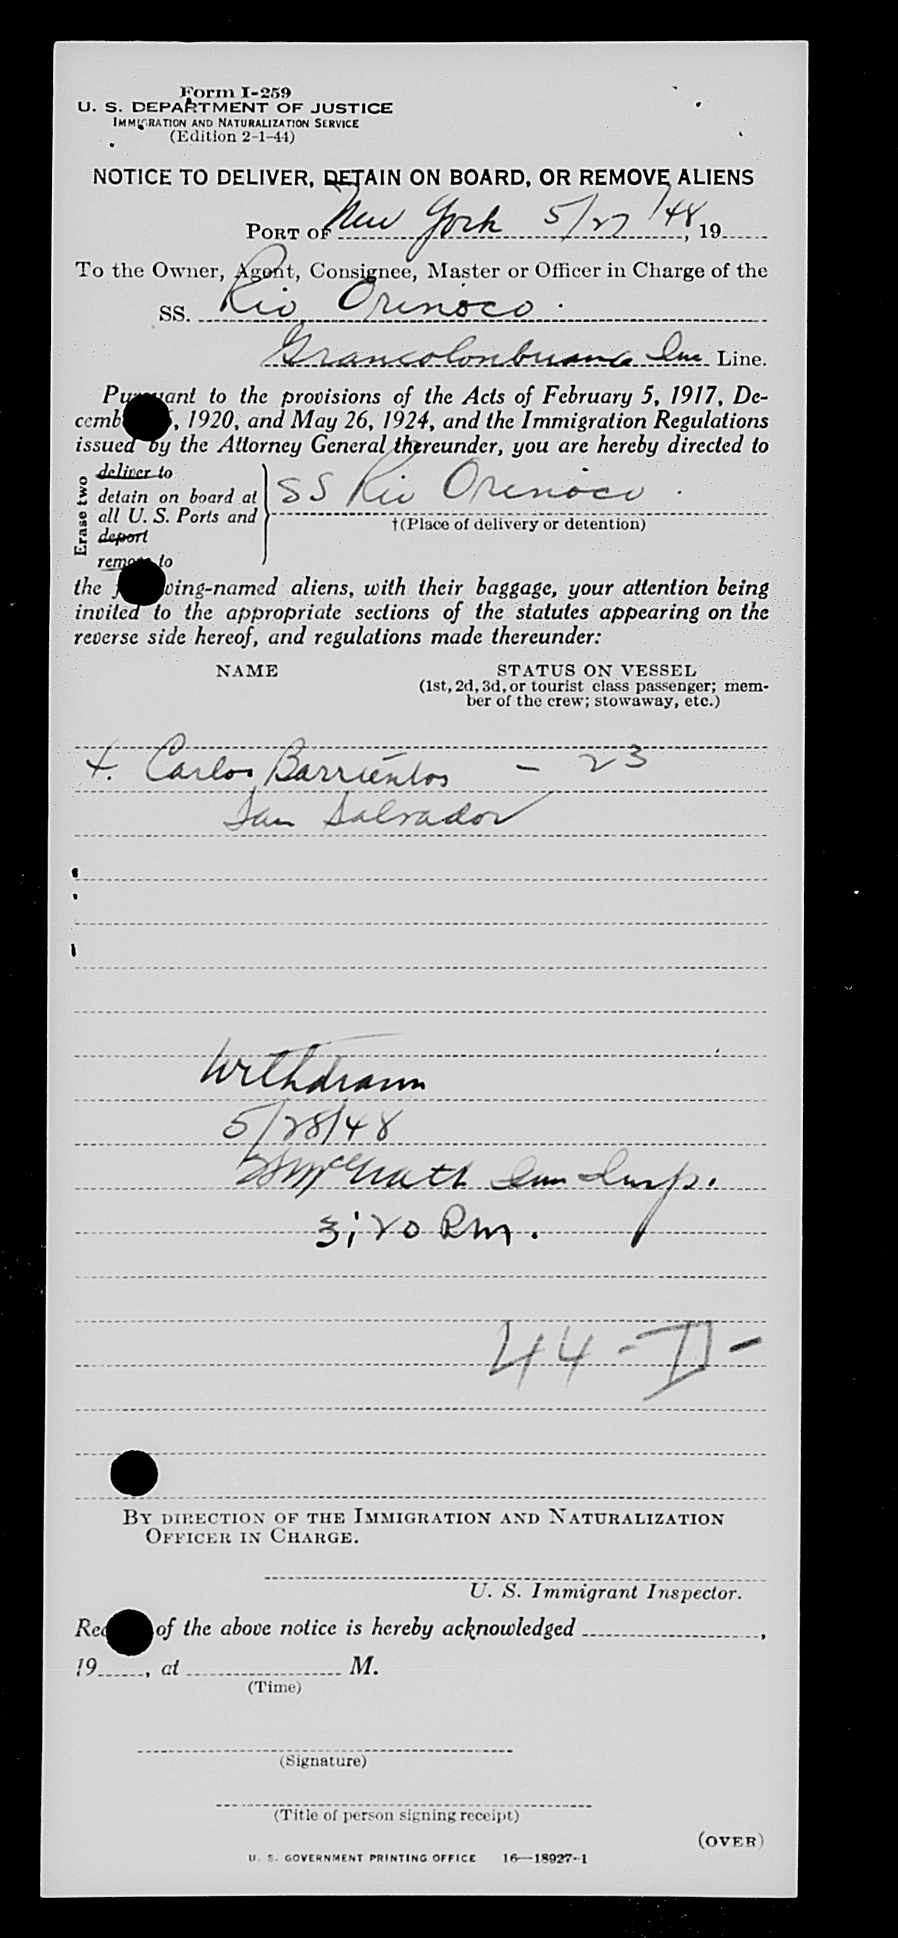 Form I-259
U. S. DEPARTMENT OF JUSTICE
IMMIGRATION AND NATURALIZATION SERVICE
(Edition 2-1-44)
NOTICE TO DELIVER, DETAIN ON BOARD, OR REMOVE ALIENS
PORT OF New York 5/27/48, 19
To the Owner, Agent, Consignee, Master or Officer in Charge of the
SS. Rio Orinoco.
Line.
Pursuant to the provisions of the Acts of February 5, 1917, De-
cemb , 1920, and May 26, 1924, and the Immigration Regulations
issued by the Attorney General thereunder, you are hereby directed to
Erase two
deliver to
detain on board at
all U. S. Ports and
deport
remove to
SS Rio Orinoco.
†(Place of delivery or detention)
the following-named aliens, with their baggage, your attention being
invited to the appropriate sections of the statutes appearing on the
reverse side hereof, and regulations made thereunder:
NAME
STATUS ON VESSEL
(1st, 2d, 3d, or tourist class passenger; mem-
ber of the crew; stowaway, etc.)
Carlos Barrientos - 23
San Salvador
Withdrawn
5/28/48
McGrath Imm Insp.
3:20 P.m.
44-D-
BY DIRECTION OF THE IMMIGRATION AND NATURALIZATION
OFFICER IN CHARGE.
U. S. Immigrant Inspector.
of the above notice is hereby acknowledged ,
19 , at M.
(Time)
(Signature)
(Title of person signing receipt)
(OVER)
U. S. GOVERNMENT PRINTING OFFICE 16—18927-1